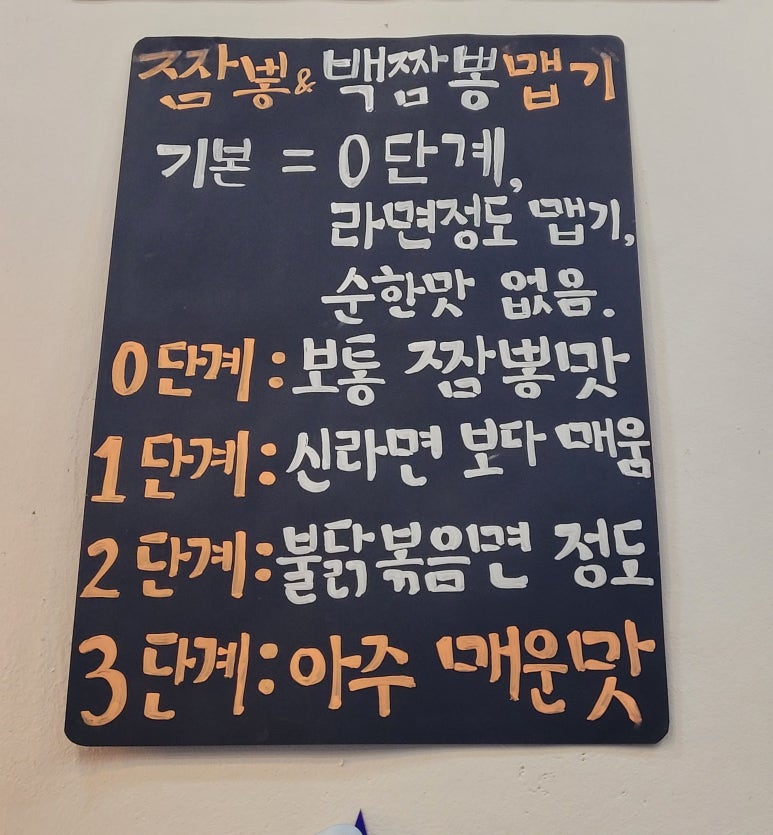 짬뽕&백짬뽕맵기
기본 = 0단계,
라면정도 맵기,
순한맛 없음.
0단계:보통 짬뽕맛
1단계:신라면 보다 매움
2단계:불닭볶음면 정도
3단계:아주 매운맛